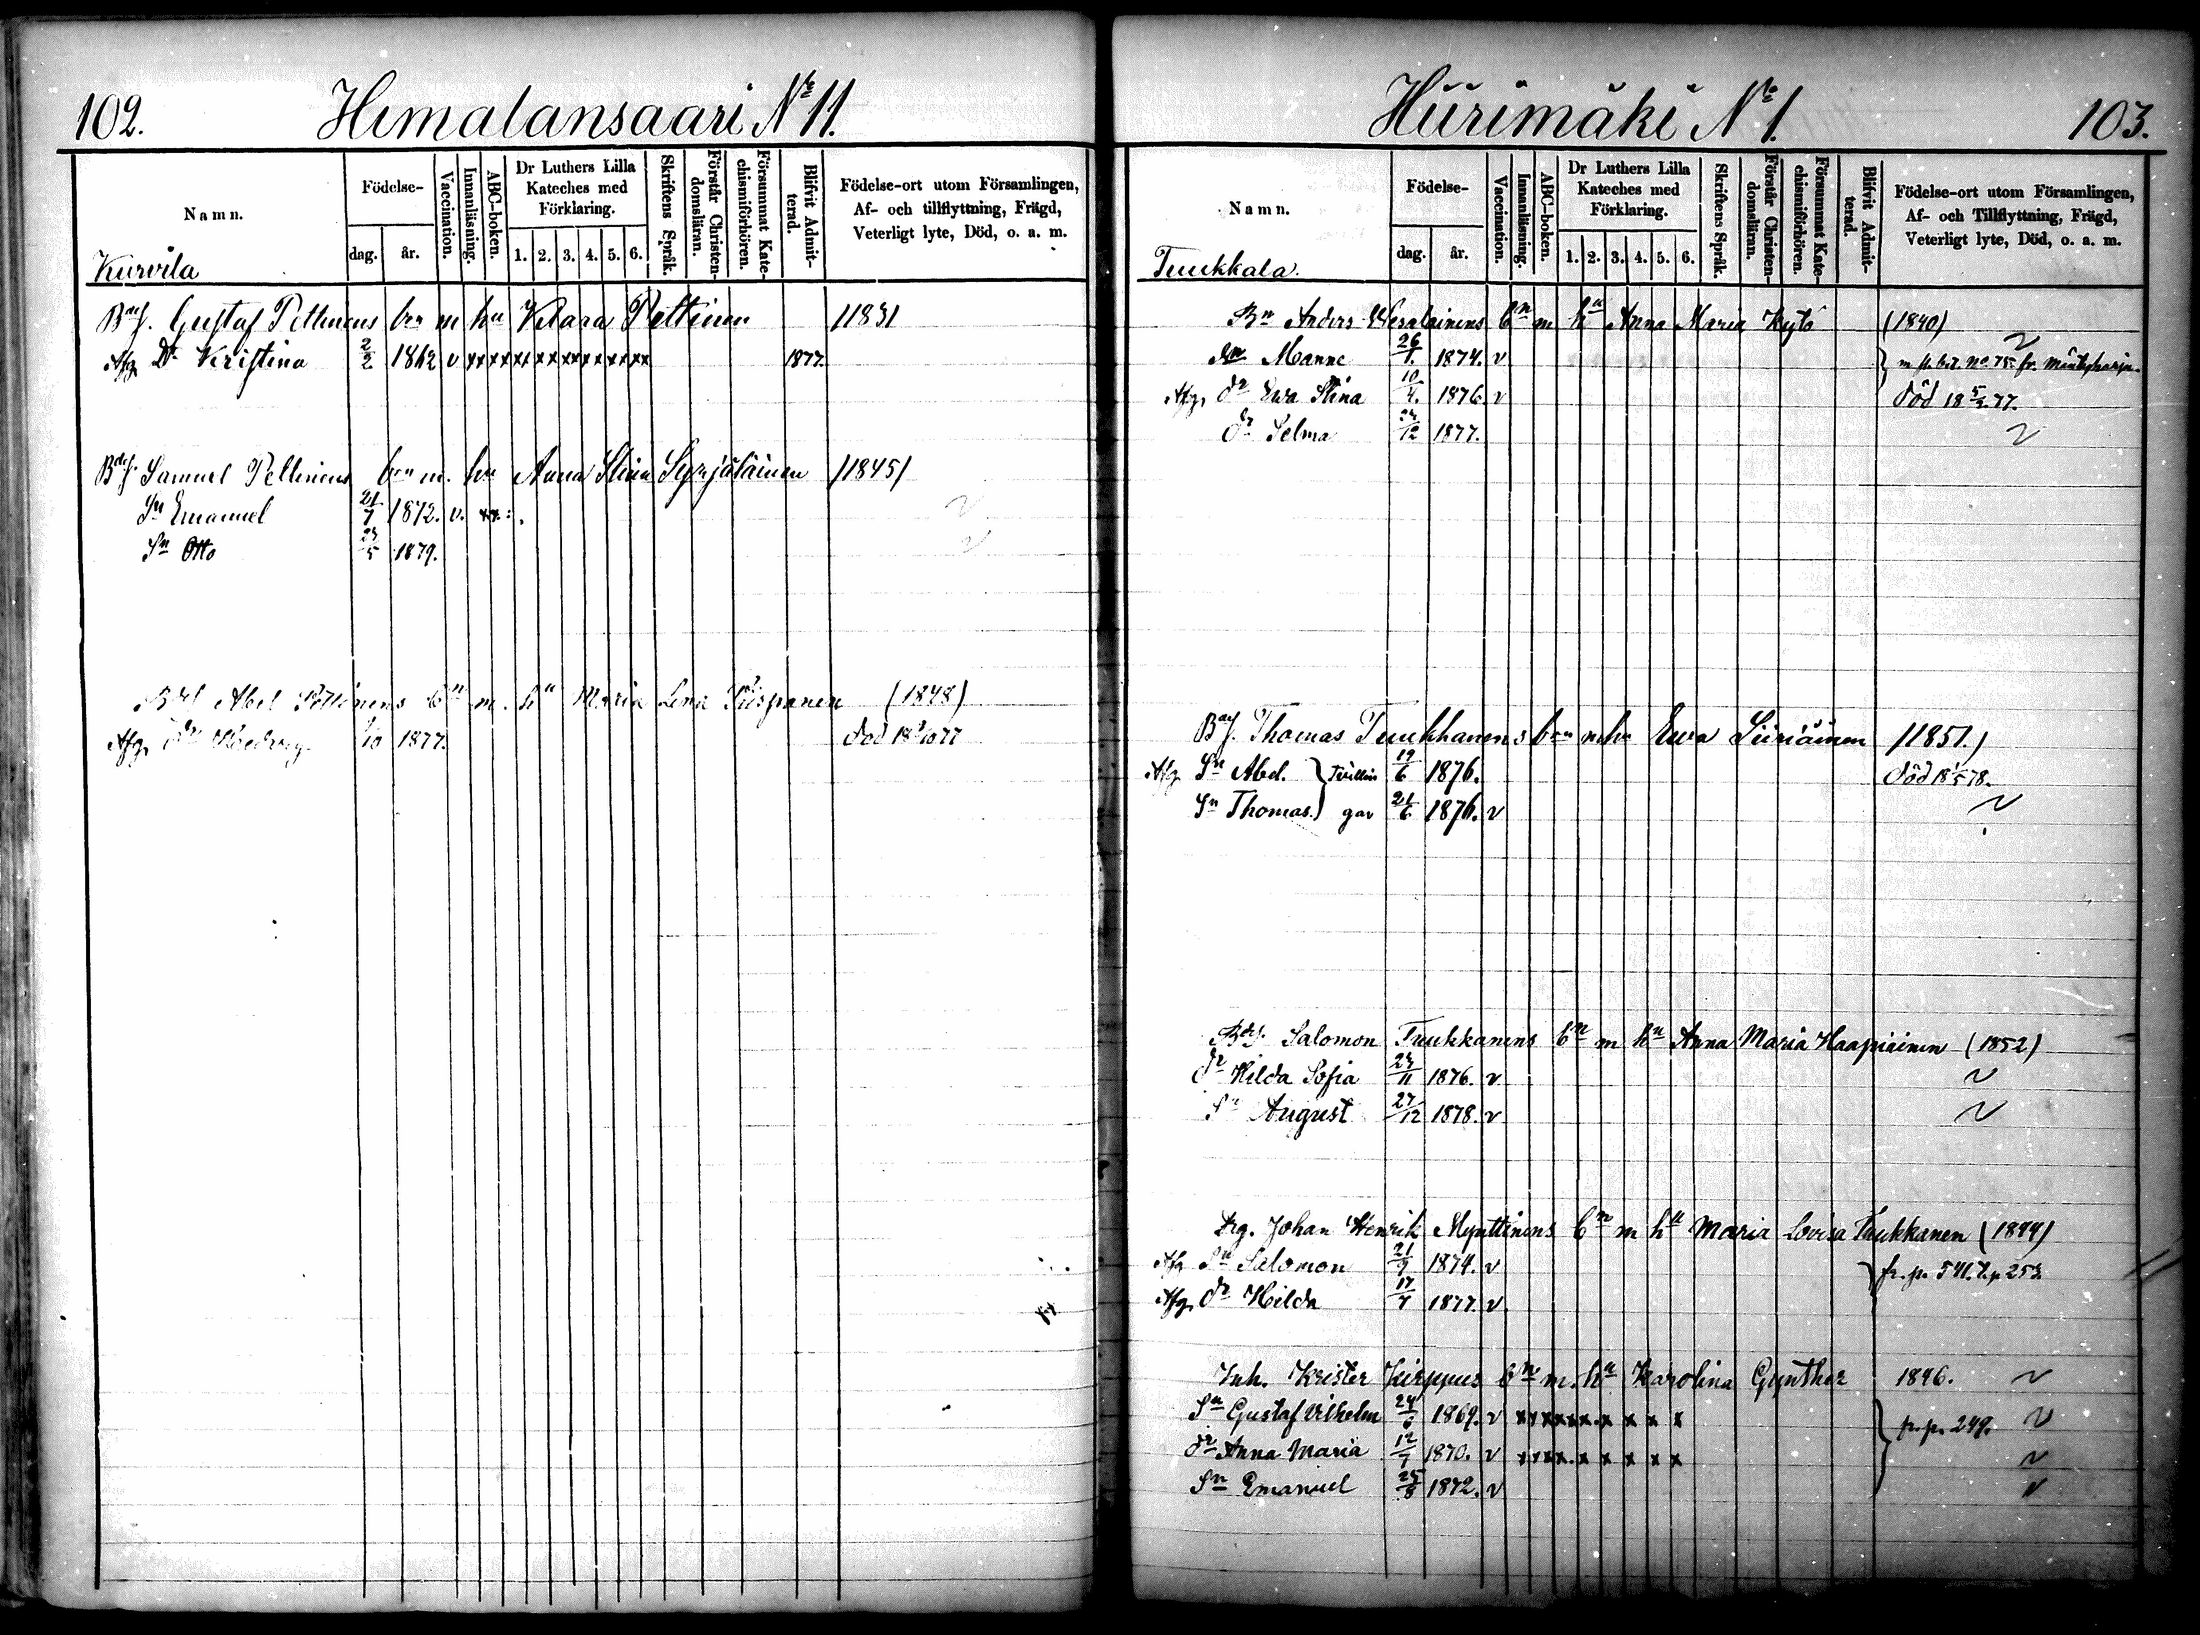 102. Himalansaari No 11.
Namn.
Kurvila
Födelse-
dag. år.
Vaccination.
Innanläsning.
ABC-boken.
Dr Luthers Lilla
Kateches med
Förklaring.
1. 2. 3. 4. 5. 6.
Skriftens Språk.
Förstår Christen-
domsläran.
Försummat Kate-
chismiförhören.
Blifvit Admit-
terad.
Födelse-ort utom Församlingen,
Af- och tillflyttning, Frägd,
Veterligt lyte, Död, o. a. m.
Gustaf Pettinens bn m hu Klara Pettinen /1831
Afg. Dr Kristina 2/2 1862 v xxxxxxxxxxxxx 1877.
Samuel Pettinens bn m. hu Anna Stina Syrjäläinen /1845/
Sn Emanuel 21/7 1872. v. xx:.
Sn Otto 23/5 1879.
Abel Pettinens bn m. hu Maria Lena Piispanen (1848)
Afg. dr Hedvig /10 1877. död 18 /10 77
Hiirimäki No 1. 103.
Namn.
Tuukkala.
Födelse-
dag. år.
Vaccination.
Innanläsning.
ABC-boken.
Dr Luthers Lilla
Kateches med
Förklaring.
1. 2. 3. 4. 5. 6.
Skriftens Språk.
Förstår Christen-
domsläran.
Försummat Kate-
chismiförhören.
Blifvit Admit-
terad.
Födelse-ort utom Församlingen,
Af- och Tillflyttning, Frägd,
Veterligt lyte, Död, o. a. m.
Bn Anders Wesalainens bn m hu Anna Maria Kytö (1840)
Manne 26/1. 1874. v
Afg. dr Ewa Stina 10/4. 1876. v död 18 5/3 77.
dr Selma 1877.
Thomas Tuukkanens bn m hu Ewa Siiriäinen /1851./
Afg. Sn Abel. } Tvillin 19/6 1876. död 18 /5 78.
Sn Thomas.) gar 21/6 1876. v
Salomon Tuukkanens bn m hu Anna Maria Haapiainen (1852)
dr Hilda Sofia 23/11 1876. v
Sn August 27/12 1878. v
Drg. Johan Henrik Mynttinens bn m hu Maria Lovisa Tuukkanen (1844)
Afg Sn Salomon 21/9 1874. v
Afg. dr Hilda 17/7 1877. v
Inh. Krister Jirppus bn m. hu Karolina Gynther 1846.
Sn Gustaf Vilhelm 24/6 1869. v xxxxxxx x x x x
dr Anna Maria 12/7 1870. v xxxx.x x x x x fr. p. 249.
Sn Emanuel 25/8 1872. v